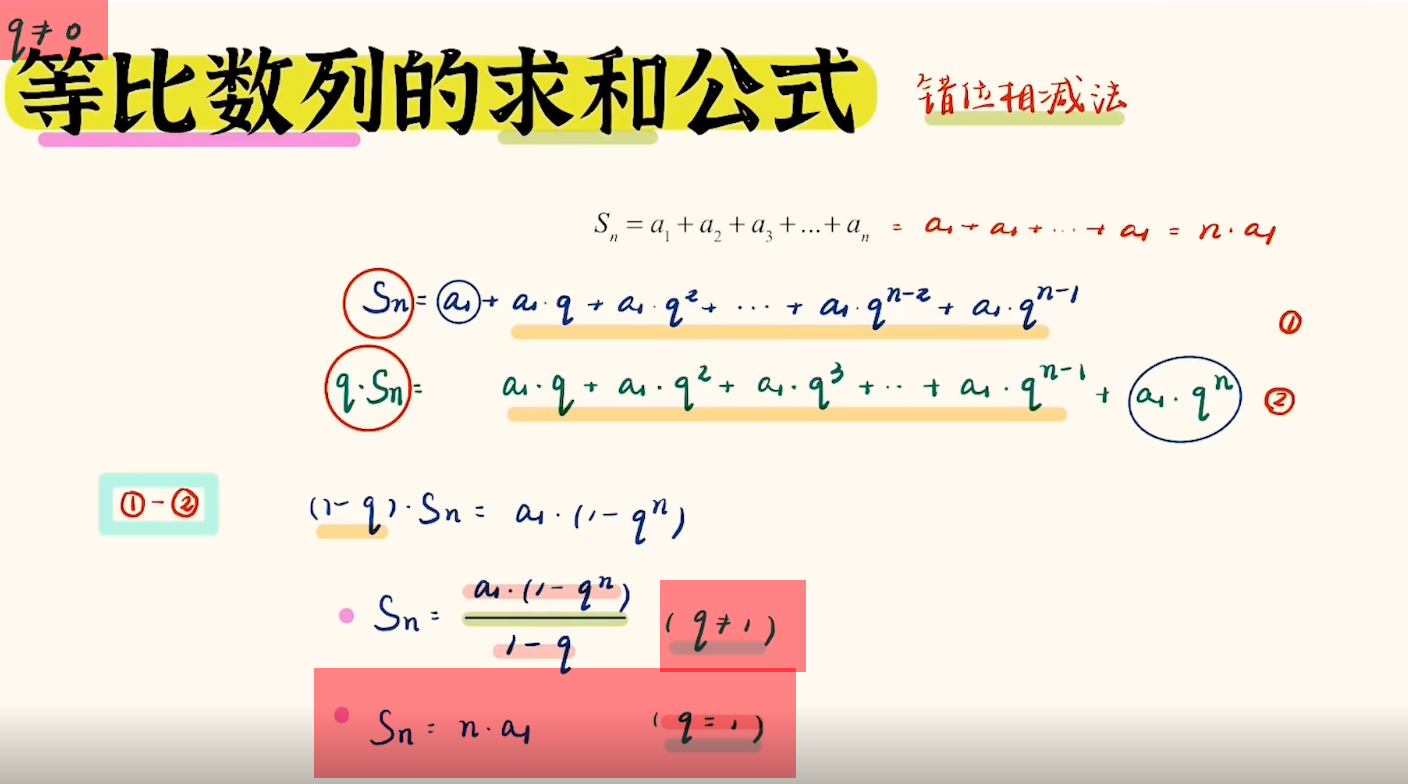 q≠0
等比数列的求和公式 错位相减法
Sₙ = a₁ + a₂ + a₃ + ... + aₙ = a₁ + a₁ + ··· + a₁ = n·a₁
Sₙ = a₁ + a₁·q + a₁·q² + ··· + a₁·qⁿ⁻² + a₁·qⁿ⁻¹ ①
q·Sₙ = a₁·q + a₁·q² + a₁·q³ + ·· + a₁·qⁿ⁻¹ + a₁·qⁿ ②
①-② (1-q)·Sₙ = a₁·(1-qⁿ)
Sₙ = a₁·(1-qⁿ) / 1-q (q≠1)
Sₙ = n·a₁ (q=1)